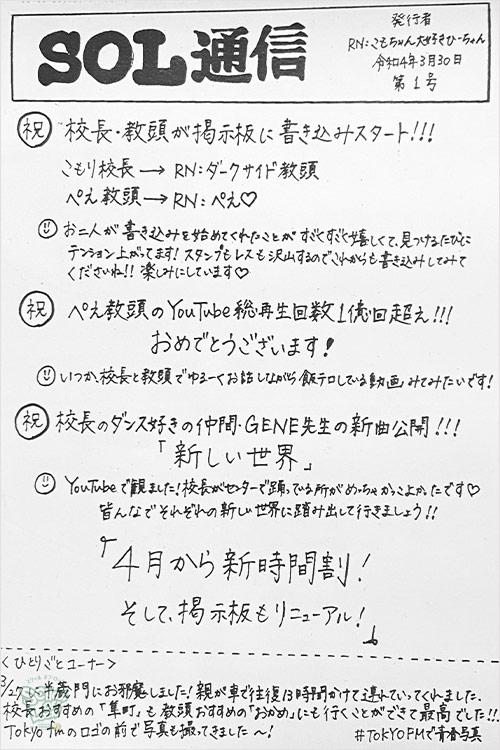 SOL通信
発行者
RN:こもちゃん大好きひーちゃん
令和4年3月30日
第1号
祝 校長・教頭が掲示板に書き込みスタート!!!
こもり校長→RN:ダークサイド教頭
ぺえ教頭→RN:ぺえ♡
お二人が書き込みを始めてくれたことがすごくすごく嬉しくて、見つけるたびに
テンション上がってます!スタンプもレスも沢山するのでこれからも書き込みしてみて
くださいね!!楽しみにしています♡
祝 ぺえ教頭のYouTube総再生回数1億回超え!!!
おめでとうございます!
いつか、校長と教頭でゆるーくお話しながら飯テロしている動画、みてみたいです!
祝 校長のダンス好きの仲間・GENE先生の新曲公開!!!
「新しい世界」
YouTubeで観ました!校長がセンターで踊っている所がめっちゃかっこよかったです♡
皆んなでそれぞれの新しい世界に踏み出して行きましょう!!
『4月から新時間割!
そして、掲示板もリニューアル!』
<ひとりごとコーナー>
3/27に半蔵門にお邪魔しました!親が車で往復13時間かけて連れていってくれました。
校長おすすめの「隼町」も教頭おすすめの「おかめ」にも行くことができて最高でした!!
Tokyo fmのロゴの前で写真も撮ってきました〜!
#TOKYOFMで青春写真